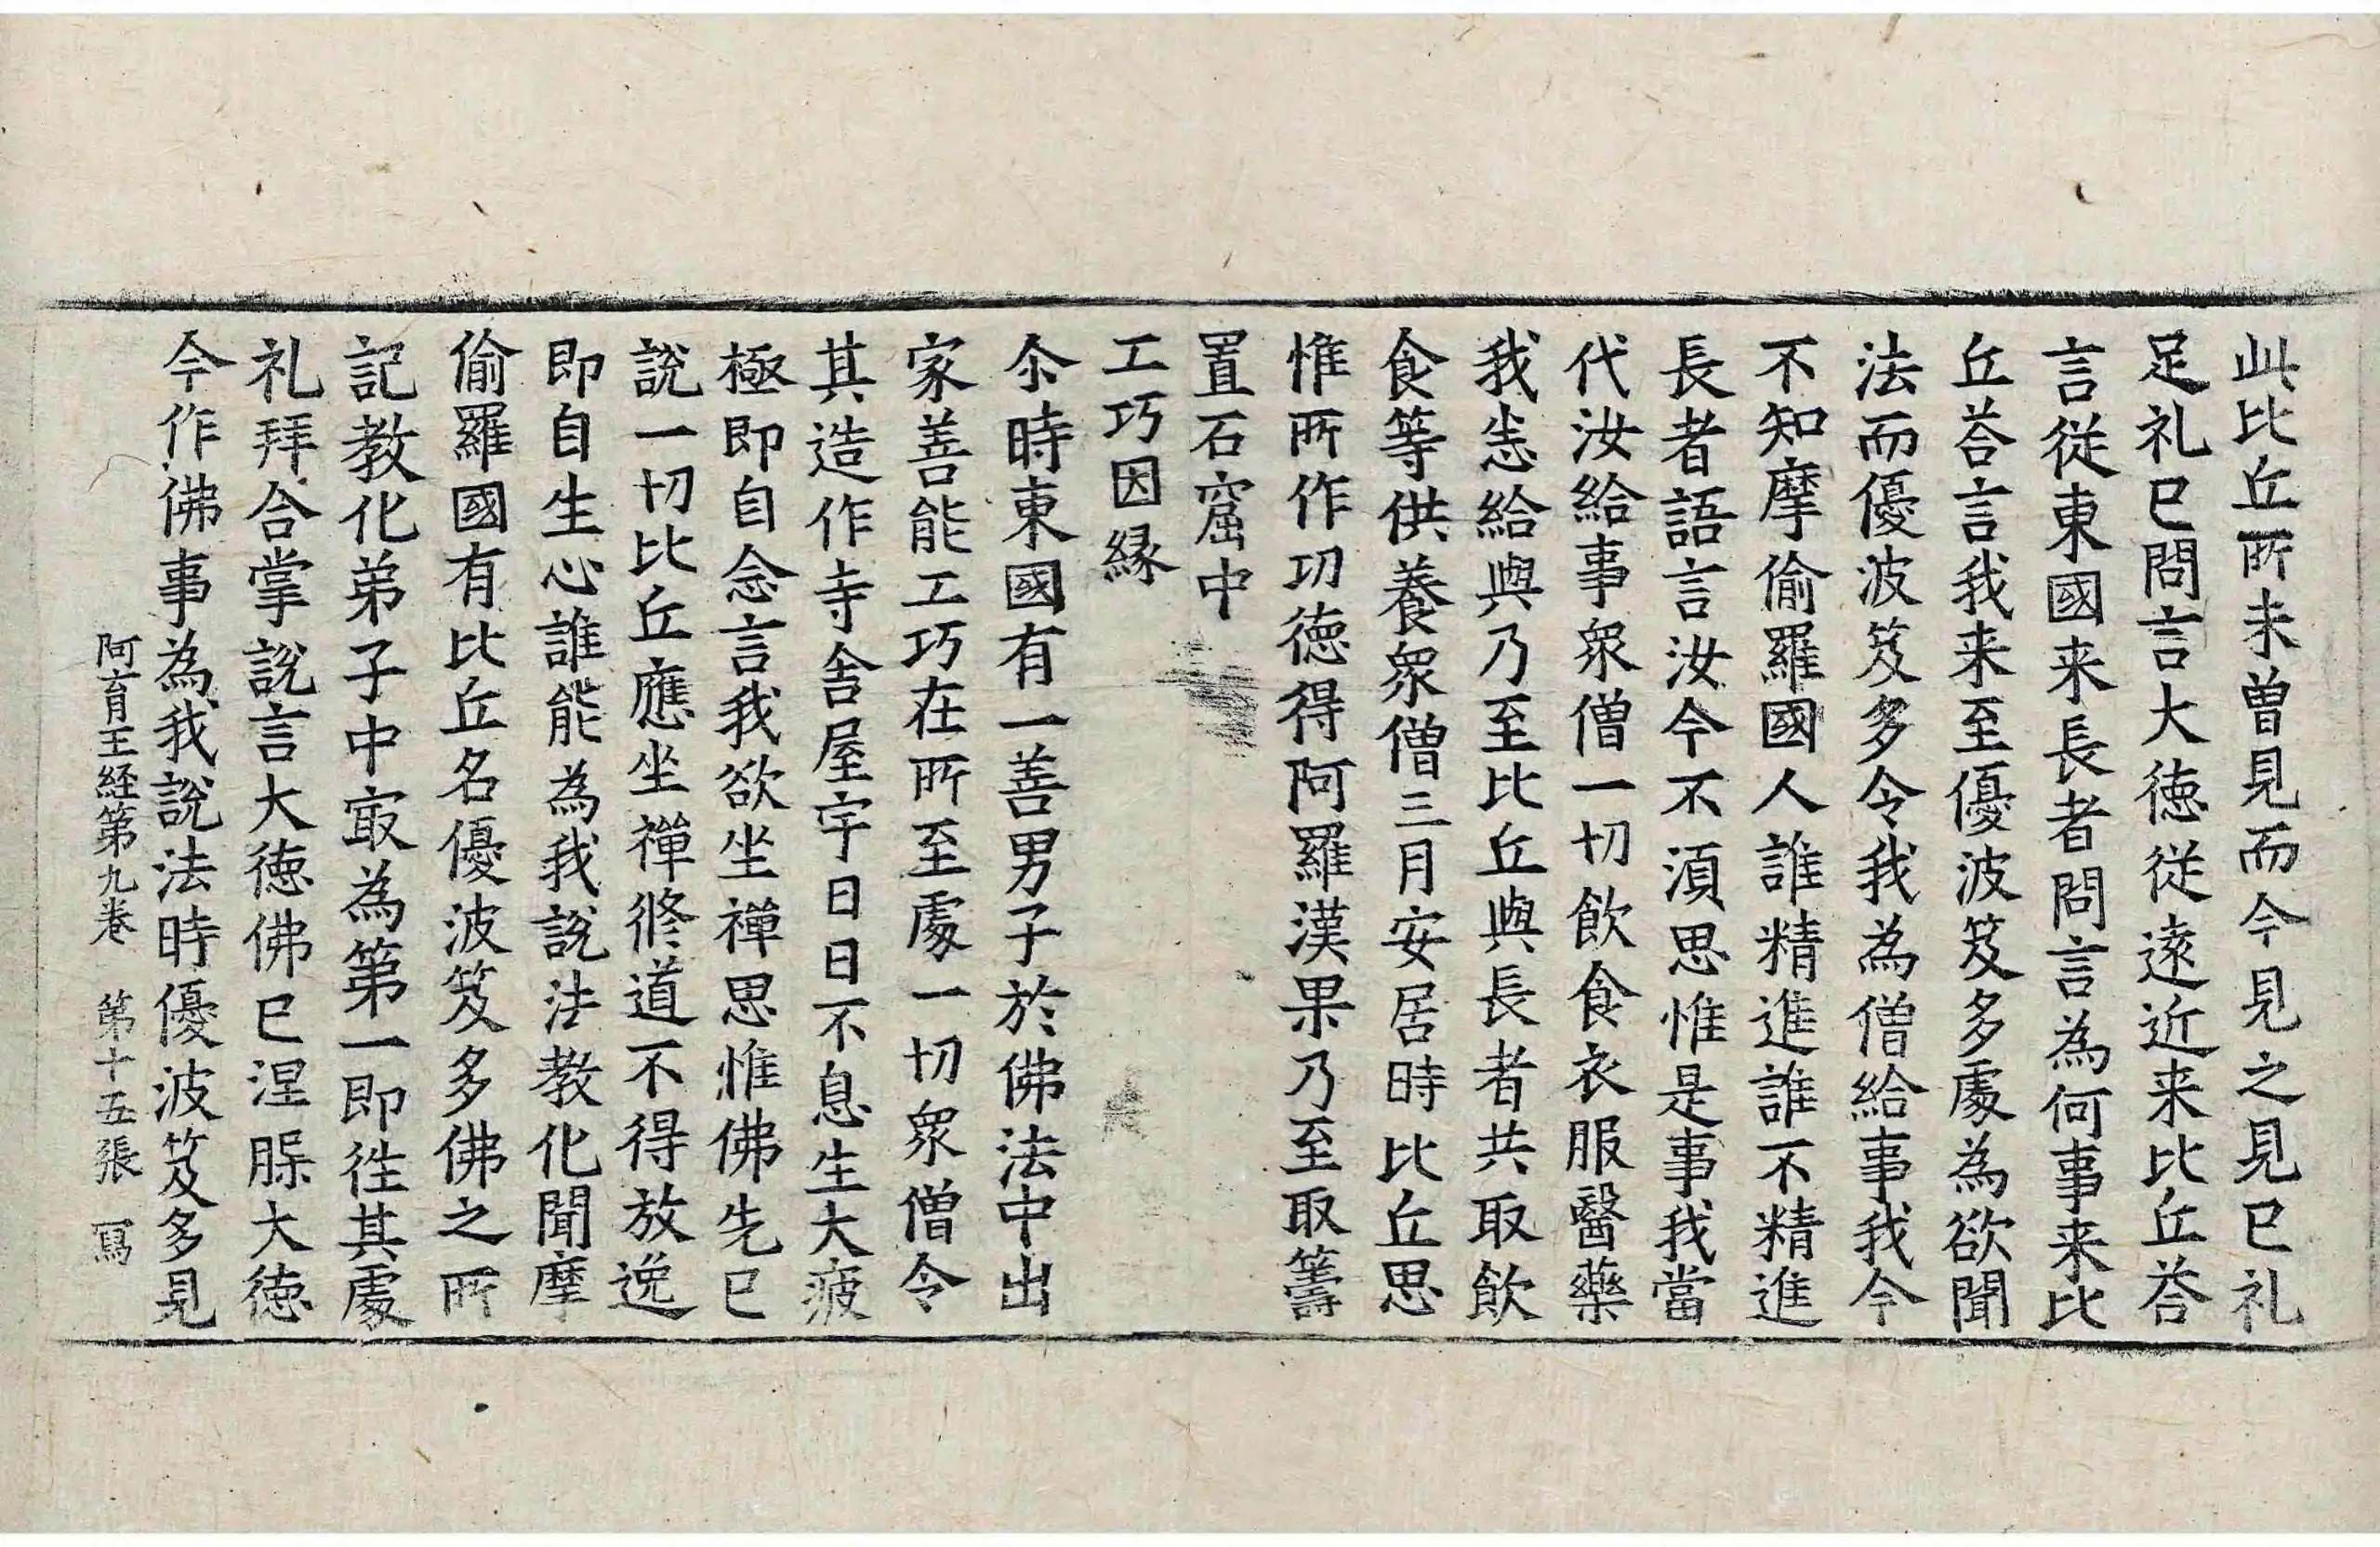 此比丘所未曽見而今見之見已礼
足礼已問言大徳従遠近来比丘荅
言従東國来長者問言為何事来比
丘荅言我来至優波笈多處為欲聞
法而優波笈多令我為僧給事我今
不知摩偷羅國人誰精進誰不精進
長者語言汝今不湏思惟是事我當
代汝給事衆僧一切飲食衣服醫藥
我悉給與乃至比丘與長者共取飲
食等供養衆僧三月安居時比丘思
惟所作功徳得阿羅漢果乃至取籌
置石窟中
工巧因縁
尒時東國有一善男子於佛法中出
家善能工巧在所至處一切衆僧令
其造作寺舎屋宇日日不息生大疲
極即自念言我欲坐禅思惟佛先已
說一切比丘應坐禪修道不得放逸
即自生心誰能為我說法教化聞摩
偷羅國有比丘名優波笈多佛之所
記教化弟子中㝡為第一即往其處
礼拜合掌說言大徳佛已涅槃大徳
今作佛事為我說法時優波笈多見
阿育王経第九卷 第十五張 寫